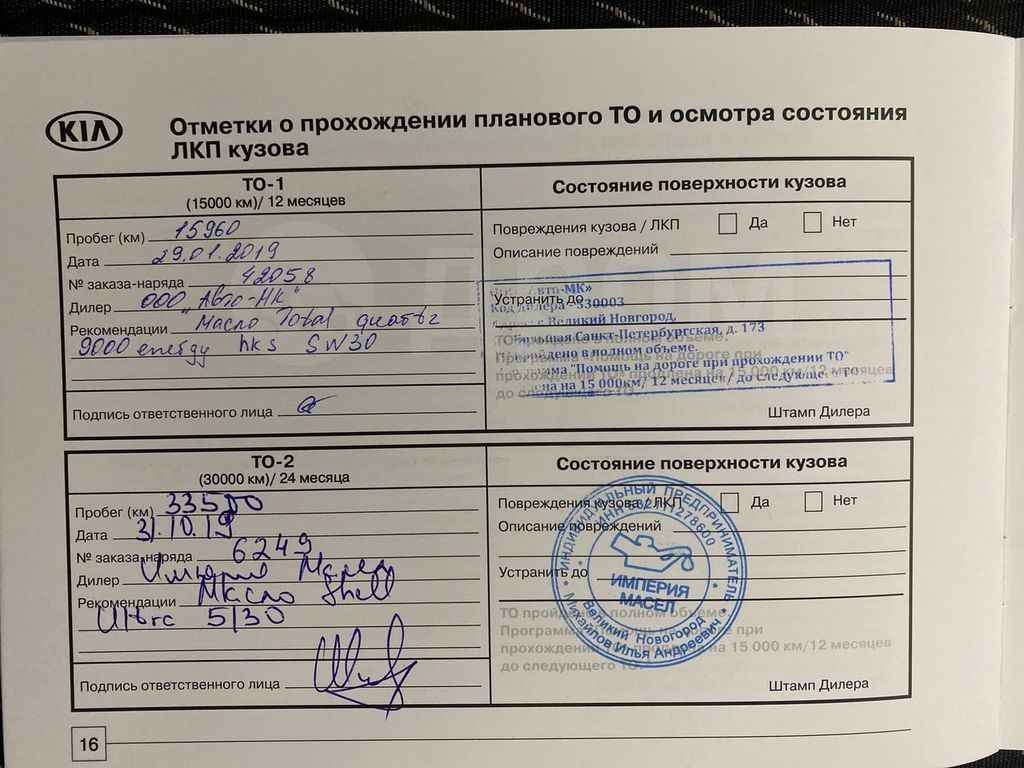 KIA
Отметки о прохождении планового ТО и осмотра состояния
ЛКП кузова
ТО-1
(15000 км)/ 12 месяцев
Пробег (км) 15960
Дата 29.01.2019
№ заказа-наряда 42058
Дилер ООО "Авто-НК"
Рекомендации Масло Total
9000 energy hks 5W30
Подпись ответственного лица
Состояние поверхности кузова
Повреждения кузова / ЛКП Да Нет
Описание повреждений
Устранить до
Авто-МК»
Код дилера - 530003
Великий Новгород,
Большая Санкт-Петербургская, д. 173
в полном объеме.
"Помощь на дороге при прохождении ТО"
на 15 000км/ 12 месяцев/ до
Штамп Дилера
ТО-2
(30000 км)/ 24 месяца
Пробег (км) 33500
Дата 31.10.19
№ заказа-наряда 6249
Дилер Империя Масел
Рекомендации Масло Shell
5/30
Подпись ответственного лица
Состояние поверхности кузова
Повреждения кузова / ЛКП Да Нет
Описание повреждений
Устранить до
ТО пройдено в полном объеме.
Программа при
прохождении на 15 000 км/12 месяцев
до следующего ТО.
ИНДИВИДУАЛЬНЫЙ ПРЕДПРИНИМАТЕЛЬ
ИМПЕРИЯ
МАСЕЛ
Великий Новгород
Михайлов Илья Андреевич
Штамп Дилера
16